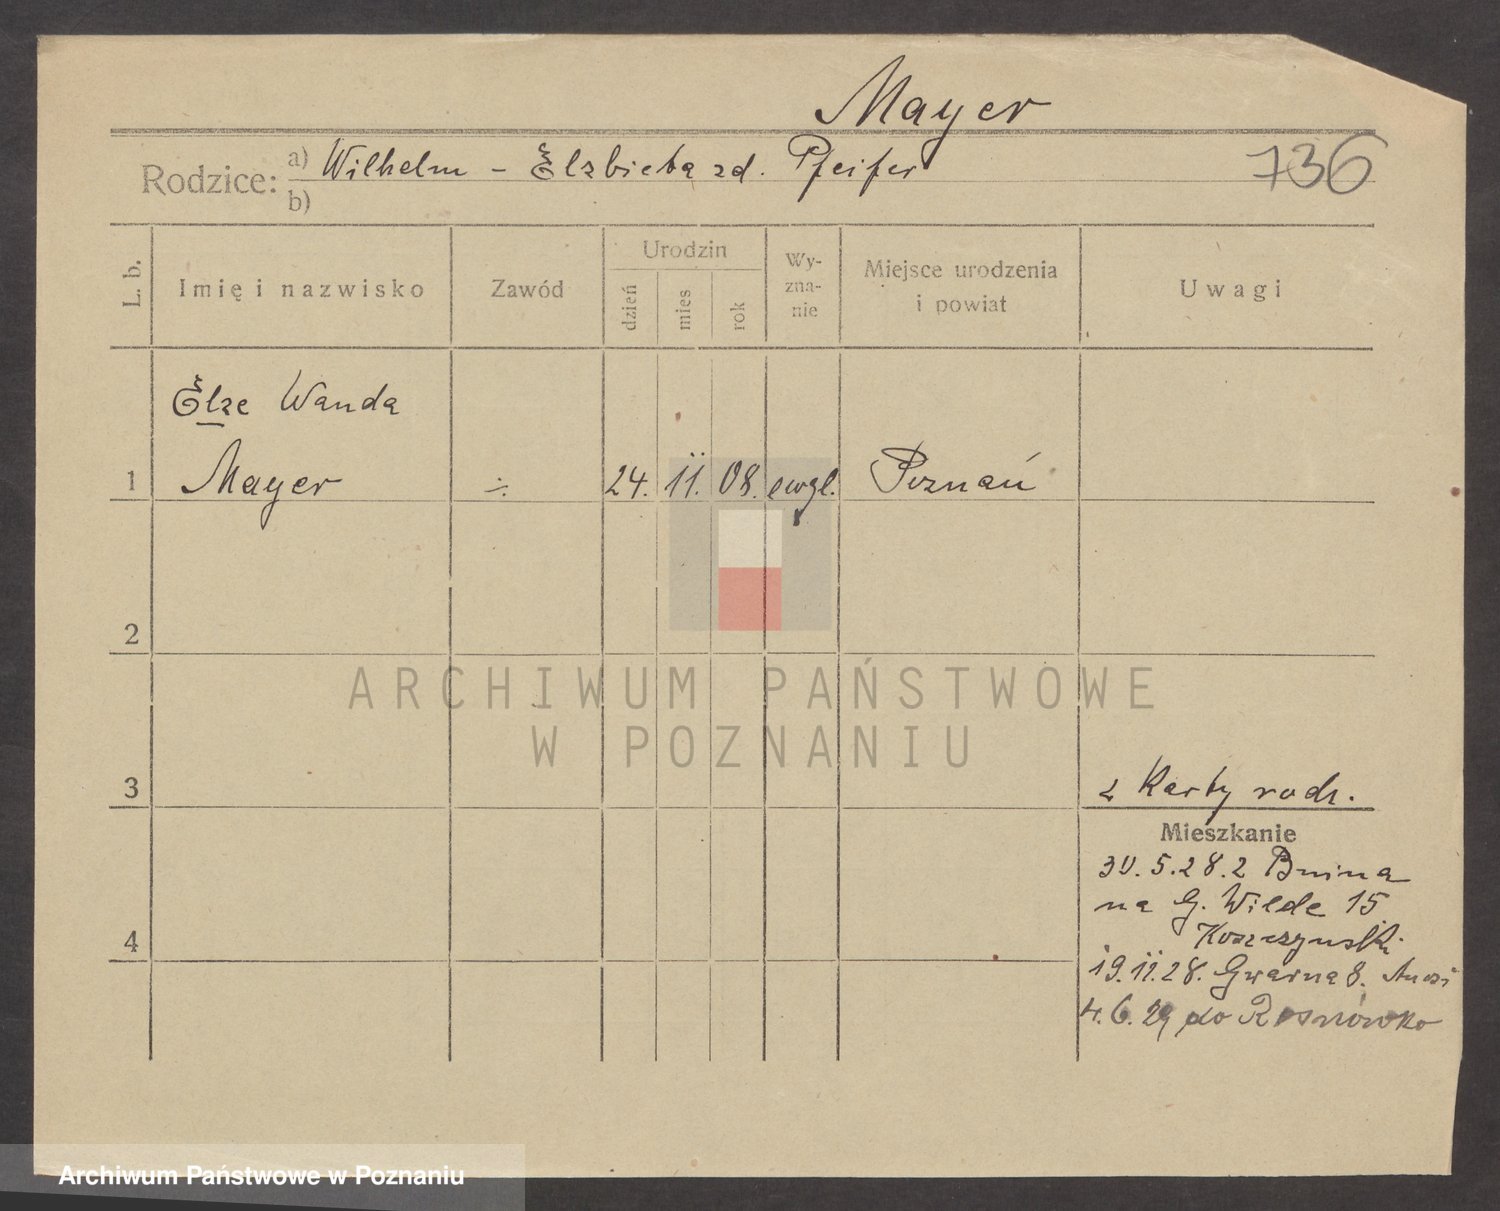 Mayer
736
Rodzice: a) Wilhelm - Elzbieta zd. Pfeifer
b)
L. b.
Imię i nazwisko
Zawód
Urodzin
dzień
mies
rok
Wy-
zna-
nie
Miejsce urodzenia
i powiat
Uwagi
Elze Wanda
1 Mayer ÷ 24. 11. 08. ewgl. Poznań
2
ARCHIWUM PAŃSTWOWE
W POZNANIU
3
z Karty rodz.
Mieszkanie
30.5.28. z Bnina
na G. Wilde 15
4
19.11.28. Gwarna 8.
4.6.29 do Rosnówko
Archiwum Państwowe w Poznaniu